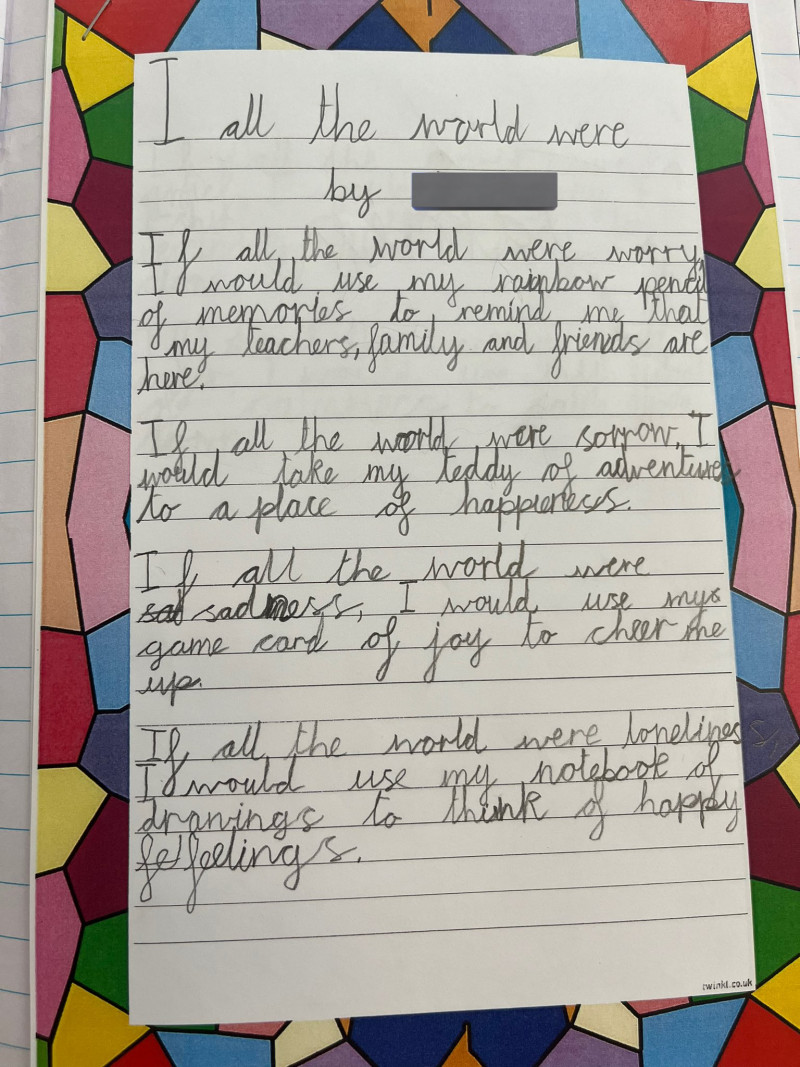 I all the world were
by
If all the world were worry,
I would use my rainbow pencil
of memories to remind me that
my teachers, family and friends are
here.
If all the world were sorrow, I
would take my teddy of adventure
to a place of happieness.
If all the world were
sad sadness, I would use my
game card of joy to cheer me
up.
If all the world were loneliness,
I would use my notebook of
drawings to think of happy
fe feelings.
twinkl.co.uk